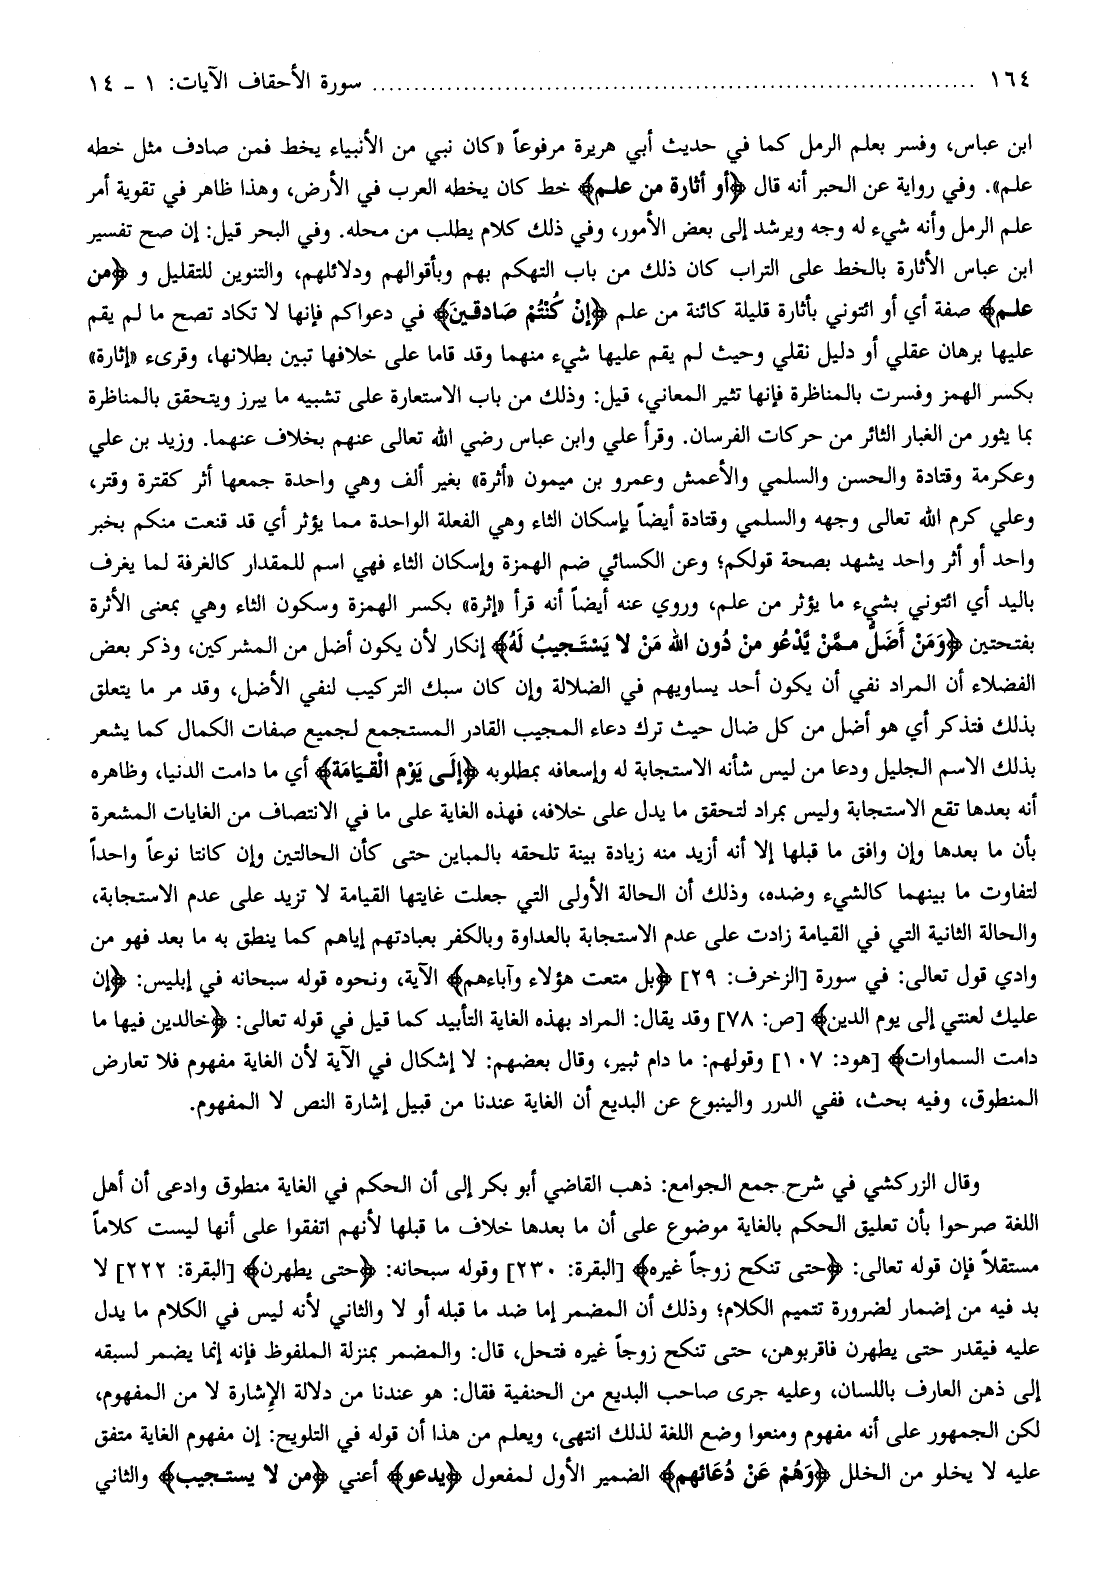 ١٦٤ ........................................................................ سورة الأحقاف الآيات: ١ - ١٤
ابن عباس، وفسر بعلم الرمل كما في حديث أبي هريرة مرفوعاً «كان نبي من الأنبياء يخط فمن صادف مثل خطه
علم». وفي رواية عن الحبر أنه قال ﴿أو أثارة من علم﴾ خط كان يخطه العرب في الأرض، وهذا ظاهر في تقوية أمر
علم الرمل وأنه شيء له وجه ويرشد إلى بعض الأمور، وفي ذلك كلام يطلب من محله. وفي البحر قيل: إن صح تفسير
ابن عباس الأثارة بالخط على التراب كان ذلك من باب التهكم بهم وبأقوالهم ودلائلهم، والتنوين للتقليل و ﴿من
علم﴾ صفة أي أو ائتوني بأثارة قليلة كائنة من علم ﴿إنْ كُنْتُمْ صَادقينَ﴾ في دعواكم فإنها لا تكاد تصح ما لم يقم
عليها برهان عقلي أو دليل نقلي وحيث لم يقم عليها شيء منهما وقد قاما على خلافها تبين بطلانها، وقرىء «إثارة»
بكسر الهمز وفسرت بالمناظرة فإنها تثير المعاني، قيل: وذلك من باب الاستعارة على تشبيه ما يبرز ويتحقق بالمناظرة
بما يثور من الغبار الثائر من حركات الفرسان. وقرأ علي وابن عباس رضي الله تعالى عنهم بخلاف عنهما. وزيد بن علي
وعكرمة وقتادة والحسن والسلمي والأعمش وعمرو بن ميمون «أثرة» بغير ألف وهي واحدة جمعها أثر كقترة وقتر،
وعلي كرم الله تعالى وجهه والسلمي وقتادة أيضاً بإسكان الثاء وهي الفعلة الواحدة مما يؤثر أي قد قنعت منكم بخبر
واحد أو أثر واحد يشهد بصحة قولكم؛ وعن الكسائي ضم الهمزة وإسكان الثاء فهي اسم للمقدار كالغرفة لما يغرف
باليد أي ائتوني بشيء ما يؤثر من علم، وروي عنه أيضاً أنه قرأ «إثرة» بكسر الهمزة وسكون الثاء وهي بمعنى الأثرة
بفتحتين ﴿وَمَنْ أَضَلُّ ممَّنْ يَّدْعُو منْ دُون الله مَنْ لا يَسْتَجيبُ لَهُ﴾ إنكار لأن يكون أضل من المشركين، وذكر بعض
الفضلاء أن المراد نفي أن يكون أحد يساويهم في الضلالة وإن كان سبك التركيب لنفي الأضل، وقد مر ما يتعلق
بذلك فتذكر أي هو أضل من كل ضال حيث ترك دعاء المجيب القادر المستجمع لجميع صفات الكمال كما يشعر
بذلك الاسم الجليل ودعا من ليس شأنه الاستجابة له وإسعافه بمطلوبه ﴿إلَى يَوْم الْقيَامَة﴾ أي ما دامت الدنيا، وظاهره
أنه بعدها تقع الاستجابة وليس بمراد لتحقق ما يدل على خلافه، فهذه الغاية على ما في الانتصاف من الغايات المشعرة
بأن ما بعدها وإن وافق ما قبلها إلا أنه أزيد منه زيادة بينة تلحقه بالمباين حتى كأن الحالتين وإن كانتا نوعاً واحداً
لتفاوت ما بينهما كالشيء وضده، وذلك أن الحالة الأولى التي جعلت غايتها القيامة لا تزيد على عدم الاستجابة،
والحالة الثانية التي في القيامة زادت على عدم الاستجابة بالعداوة وبالكفر بعبادتهم إياهم كما ينطق به ما بعد فهو من
وادي قول تعالى: في سورة [الزخرف: ٢٩] ﴿بل متعت هؤلاء وآباءهم﴾ الآية، ونحوه قوله سبحانه في إبليس: ﴿إن
عليك لعنتي إلى يوم الدين﴾ [ص: ٧٨] وقد يقال: المراد بهذه الغاية التأبيد كما قيل في قوله تعالى: ﴿خالدين فيها ما
دامت السماوات﴾ [هود: ١٠٧] وقولهم: ما دام ثبير، وقال بعضهم: لا إشكال في الآية لأن الغاية مفهوم فلا تعارض
المنطوق، وفيه بحث، ففي الدرر والينبوع عن البديع أن الغاية عندنا من قبيل إشارة النص لا المفهوم.
وقال الزركشي في شرح جمع الجوامع: ذهب القاضي أبو بكر إلى أن الحكم في الغاية منطوق وادعى أن أهل
اللغة صرحوا بأن تعليق الحكم بالغاية موضوع على أن ما بعدها خلاف ما قبلها لأنهم اتفقوا على أنها ليست كلاماً
مستقلاً فإن قوله تعالى: ﴿حتى تنكح زوجاً غيره﴾ [البقرة: ٢٣٠] وقوله سبحانه: ﴿حتى يطهرن﴾ [البقرة: ٢٢٢] لا
بد فيه من إضمار لضرورة تتميم الكلام؛ وذلك أن المضمر إما ضد ما قبله أو لا والثاني لأنه ليس في الكلام ما يدل
عليه فيقدر حتى يطهرن فاقربوهن، حتى تنكح زوجاً غيره فتحل، قال: والمضمر بمنزلة الملفوظ فإنه إنما يضمر لسبقه
إلى ذهن العارف باللسان، وعليه جرى صاحب البديع من الحنفية فقال: هو عندنا من دلالة الإشارة لا من المفهوم،
لكن الجمهور على أنه مفهوم ومنعوا وضع اللغة لذلك انتهى، ويعلم من هذا أن قوله في التلويح: إن مفهوم الغاية متفق
عليه لا يخلو من الخلل ﴿وَهُمْ عَنْ دُعَائهم﴾ الضمير الأول لمفعول ﴿يدعو﴾ أعني ﴿من لا يستجيب﴾ والثاني